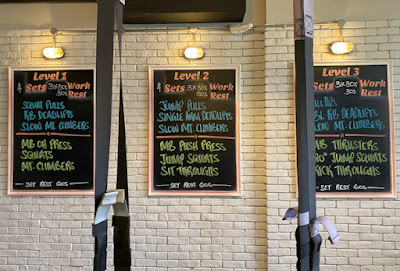 Level 1
4 Sets 3x30s Work
30s Rest
SQUAT PULLS
KB DEADLIFTS
SLOW MT. CLIMBERS
MB OH PRESS
SQUATS
MT. CLIMBERS
SET REST 60s
Level 2
4 Sets 3x30s Work
30s Rest
JUMP PULLS
SINGLE ARM DEADLIFTS
SLOW MT. CLIMBERS
MB PUSH PRESS
JUMP SQUATS
SIT THROUGHS
SET REST 60s
Level 3
Sets 3x30s Work
30s Rest
KB DEADLIFTS
SLOW MT. CLIMBERS
MB THRUSTERS
JUMP SQUATS
KICK THROUGHS
SET REST 60s